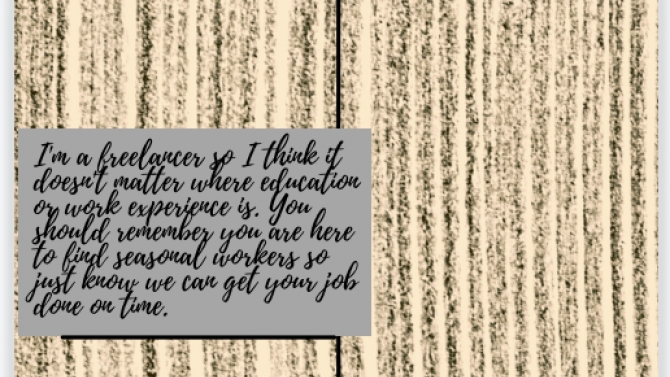 I'm a freelancer so I think it
doesn't matter where education
or work experience is. You
should remember you are here
to find seasonal workers so
just know we can get your job
done on time.